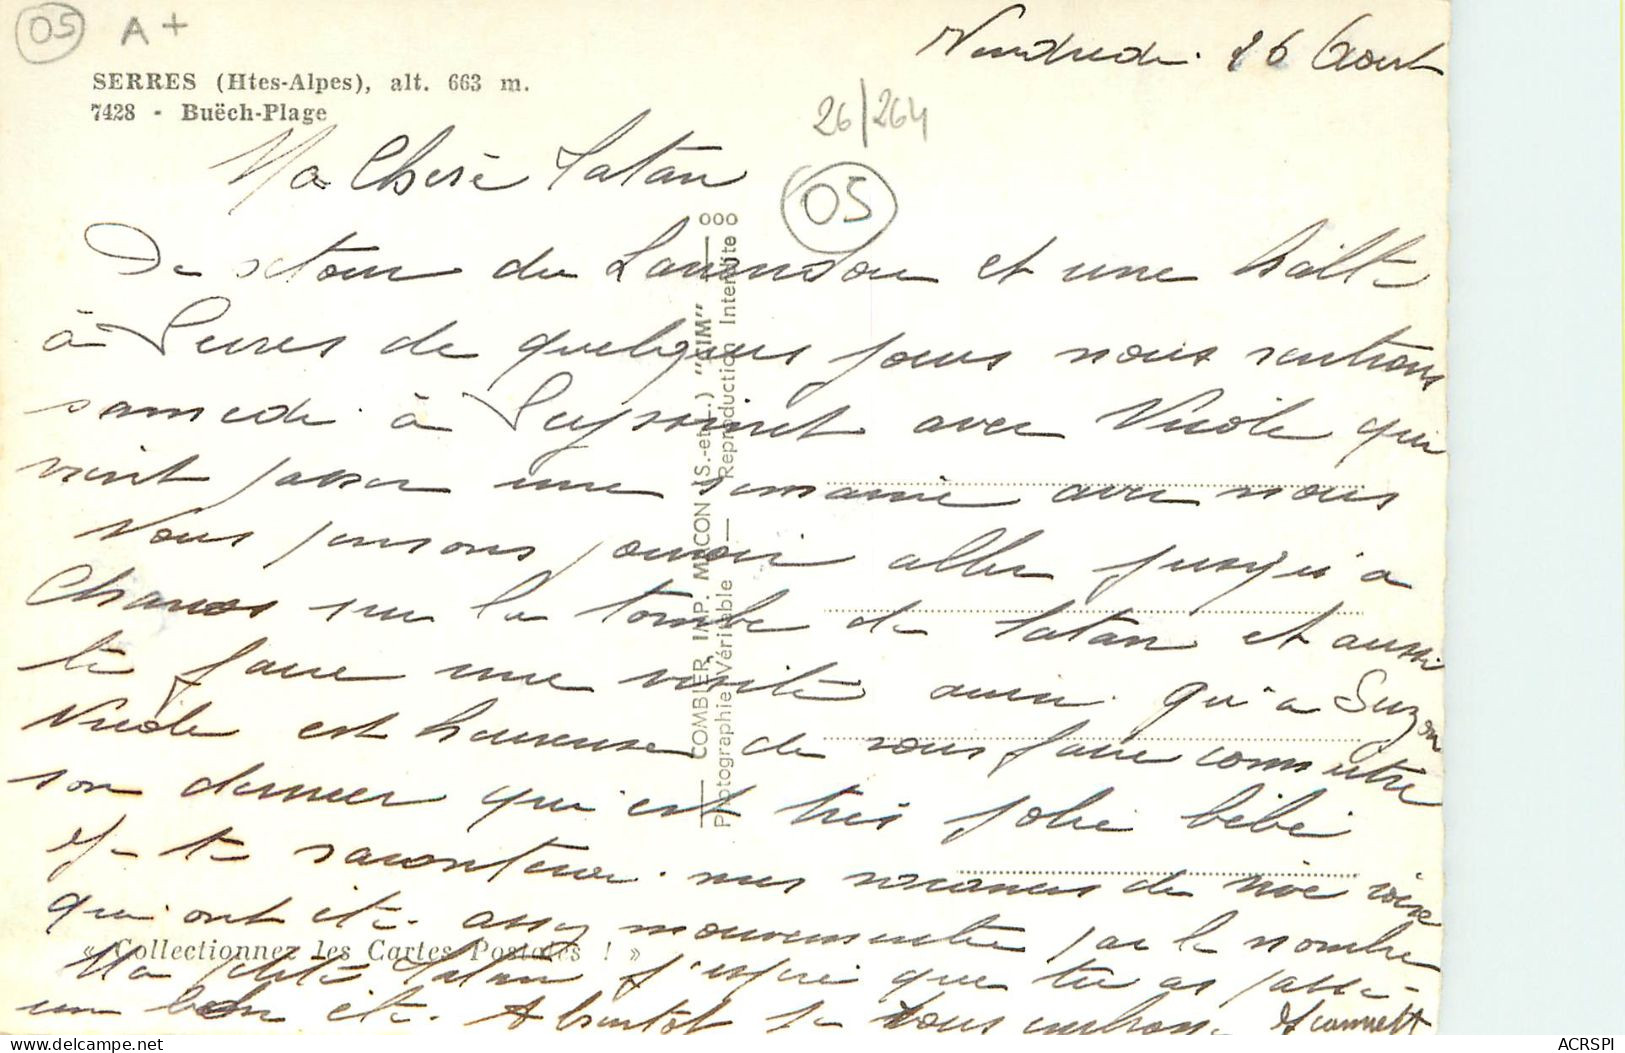 05 A+
Vendredi 26 Aout
SERRES (Htes-Alpes), alt. 663 m.
7428 - Buëch-Plage
26/264
05
Ma Chère Tatan
De retour du Lavandou et une halte
à Serres de quelques jours nous rentrons
samedi à Seyssinet avec Nicole qui
vient passer une semaine avec nous
Nous pensons pouvoir aller jusqu'à
sur la tombe de Tatan et aussi
te faire une visite ainsi qu'à Suzon
Nicole est heureuse de vous faire connaitre
son dernier qui est très joli bébé
Je te raconterai mes vacances de vive voix
qui ont été assez mouvementées par le nombre
« Collectionnez les Cartes Postales ! »
Ma petite Tatan j'espère que tu as passé
un bon été. A bientot je vous embrasse Jeannette
COMBIER, IMP. MACON (S.-et-L.) "CIM"
Photographie Véritable — Reproduction Interdite
ACRSPI